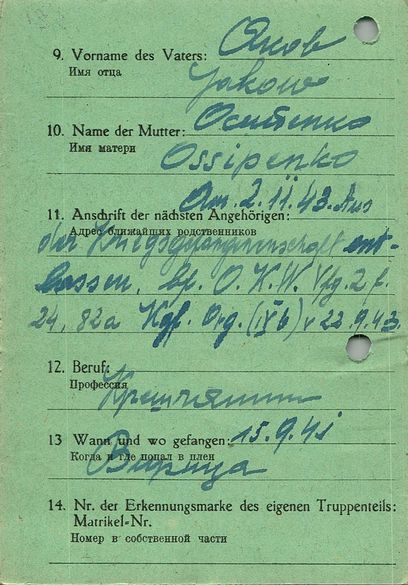 9. Vorname des Vaters: Яков
Имя отца
Jakow
10. Name der Mutter: Осипенко
Имя матери
Ossipenko
Am 2.11.43. Aus
11. Anschrift der nächsten Angehörigen:
Адрес ближайших родственников
der Kriegsgefangenschaft ent-
lassen, bf. O.K.W. Vfg. 2 f.
24, 82a Kgf. Org. (IVb) v 22.9.43.
12. Beruf:
Профессия
Крестьянин
13 Wann und wo gefangen: 15.9.41
Когда и где попал в плен
Вирица
14. Nr. der Erkennungsmarke des eigenen Truppenteils:
Matrikel-Nr.
Номер в собственной части